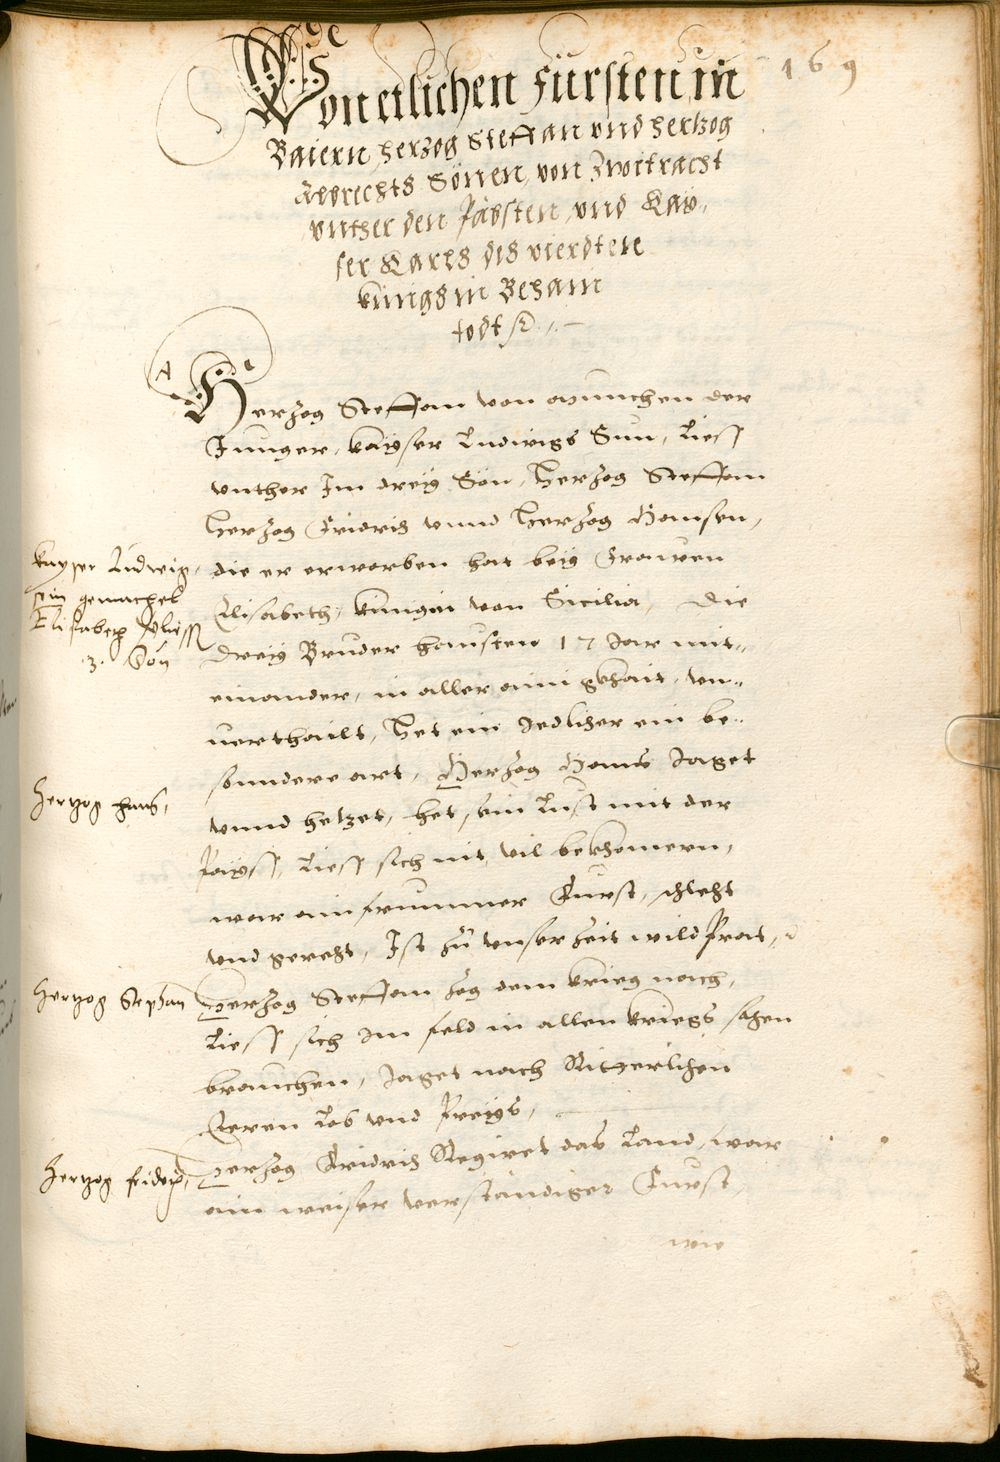 169
Von etlichen Fürsten in
Baiern, herzog Steffan vnd hertzog
Albrechts Sönen, von Zwitracht
vnther den Päbsten, vnd Kay,
ser Karls des vierdten
künigs in Behaim
todt
Herzog Steffan von München der
Junger, kayser Ludwigs Sun, Liess
vnther Im dreÿ Sön, Herzog Steffan
Herzog Fridrich vnnd Herzog Hansen,
die er erworben hat beÿ Frauen
Elisabeth, künigin von Sicilia, Die
dreÿ Bruder hausten 17 Jar mit,,
einander, in aller ainigkhait, vn,,
uerthailt, Het ein Jedlicher ein be,,
sundere art, Herzog Hans Jaget
vnnd hetzet, het sein Lust mit der
Payss, Liess sich nit vil bekhömern,
war ain frummer Fürst, schlecht
vnd gerecht, Ist zu vnser zeit wildprät,
Herzog Steffan zog dem krieg nach,
Liess sich im feld in allen kriegs sachen
brauchen, Jaget nach Ritterlichen
Eeren Lob vnd Preÿs,
Herzog Fridrich Regiret das Land, war
ain weiser verständiger Fürst,
wie
kayser Ludwig,
sein gemachel
Elisabeth
3. Sön
Hertzog Hans,
Hertzog Stephan
Hertzog fridrich,